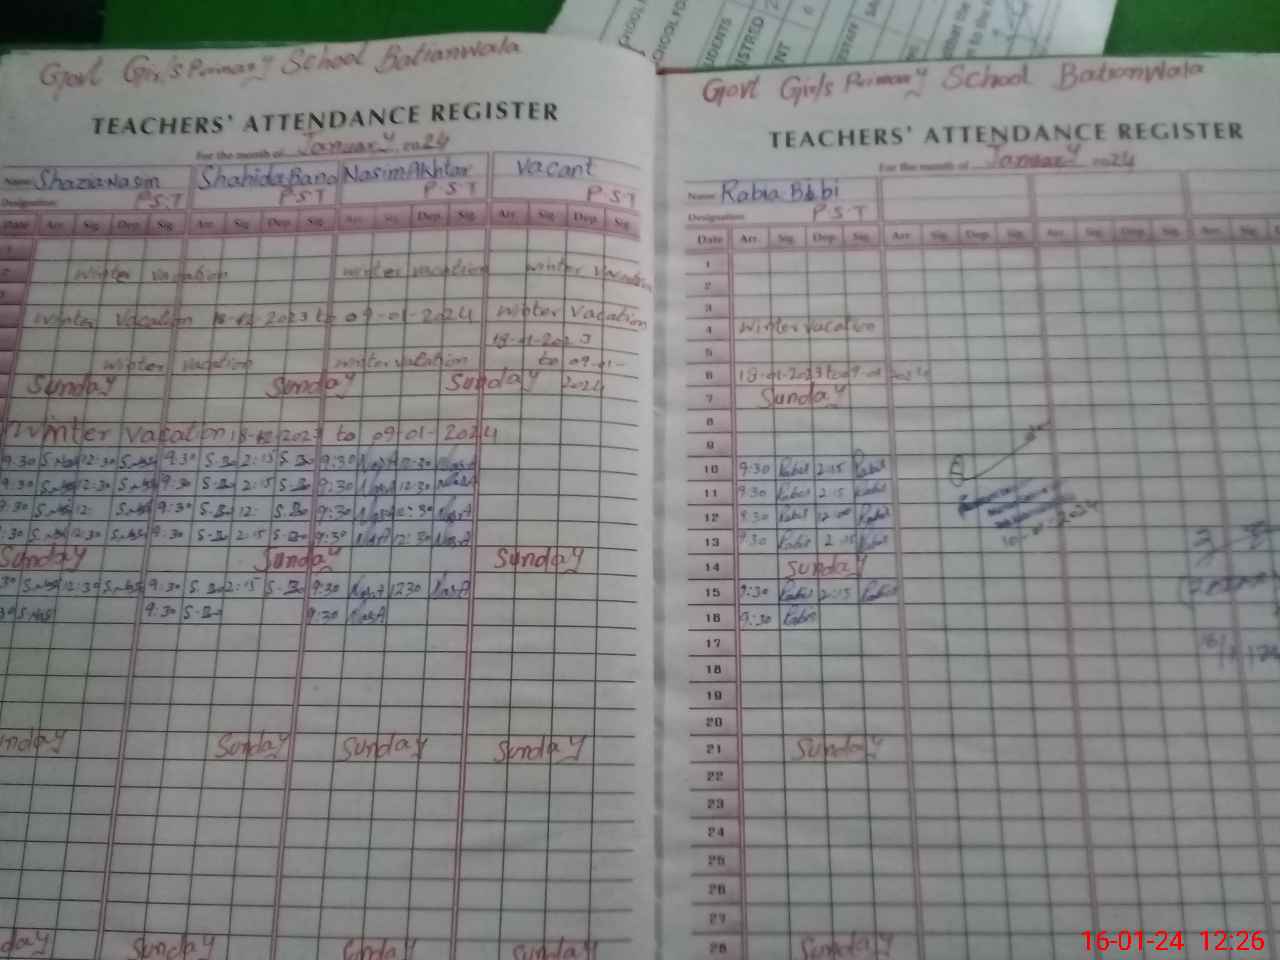 Govt Girls Primary School Batianwala
TEACHERS' ATTENDANCE REGISTER
For the month of January 2024
Name Shazia Nasim Shahida Bano Nasim Akhtar Vacant
Designation P.S.T P S T P S T P S T
Date Arr. Sig. Dep. Sig. Arr. Sig. Dep. Sig. Arr. Sig. Dep. Sig. Arr. Sig. Dep. Sig.
1
2 winter vacation winter vacation winter vacation
3
winter vacation 18-12-2023 to 09-01-2024 winter vacation
18-01-2023
winter vacation winter vacation to 09-01-
Sunday Sunday Sunday 2024
winter vacation 18-12-2023 to 09-01-2024
9:30 S.Nas 12:30 S.Nas 9:30 S-Bo 2:15 S-Bo 9:30 NasA 12:30 NasA
9:30 S.Nas 12:30 S.Nas 9:30 S-Bo 2:15 S-Bo 9:30 NasA 12:30 NasA
9:30 S.Nas 12: S.Nas 9:30 S-Bo 12: S-Bo 9:30 NasA 12:30 NasA
:30 S.Nas 12:30 S.Nas 9:30 S-Bo 2:15 S-Bo 9:30 NasA 12:30 NasA
Sunday Sunday Sunday
30 S.Nas 12:30 S.Nas 9:30 S-Bo 2:15 S-Bo 9:30 NasA 1230 NasA
30 S.Nas 9:30 S-Bo 9:30 NasA
nday Sunday Sunday Sunday
day Sunday Sunday Sunday
Govt Girls Primary School Batianwala
TEACHERS' ATTENDANCE REGISTER
For the month of January 2024
Name Rabia Bibi
Designation P.S.T
Date Arr. Sig. Dep. Sig. Arr. Sig. Dep. Sig. Arr. Sig. Dep. Sig. Arr. Sig.
1
2
3
4 winter vacation
5
6 18-01-2023 to 09-01 2024
7 Sunday
8
9
10 9:30 Rabia 2:15 Rabia
11 9:30 Rabia 2:15 Rabia
12 9:30 Rabia 12:00 Rabia
13 9:30 Rabia 2:15 Rabia
14 Sunday
15 9:30 Rabia 2:15 Rabia
16 9:30 Rabia
17
18
19
20
21 Sunday
22
23
24
25
26
27
28 Sunday
16-01-24 12:26